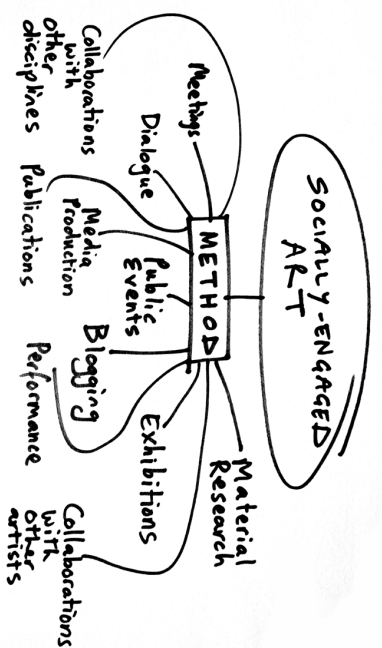 SOCIALLY-ENGAGED
ART
METHOD
Collaborations
with
other
disciplines
Meetings
Dialogue
Publications
Media
Production
Public
Events
Blogging
Performance
Exhibitions
Material
Research
Collaborations
with
other
artists